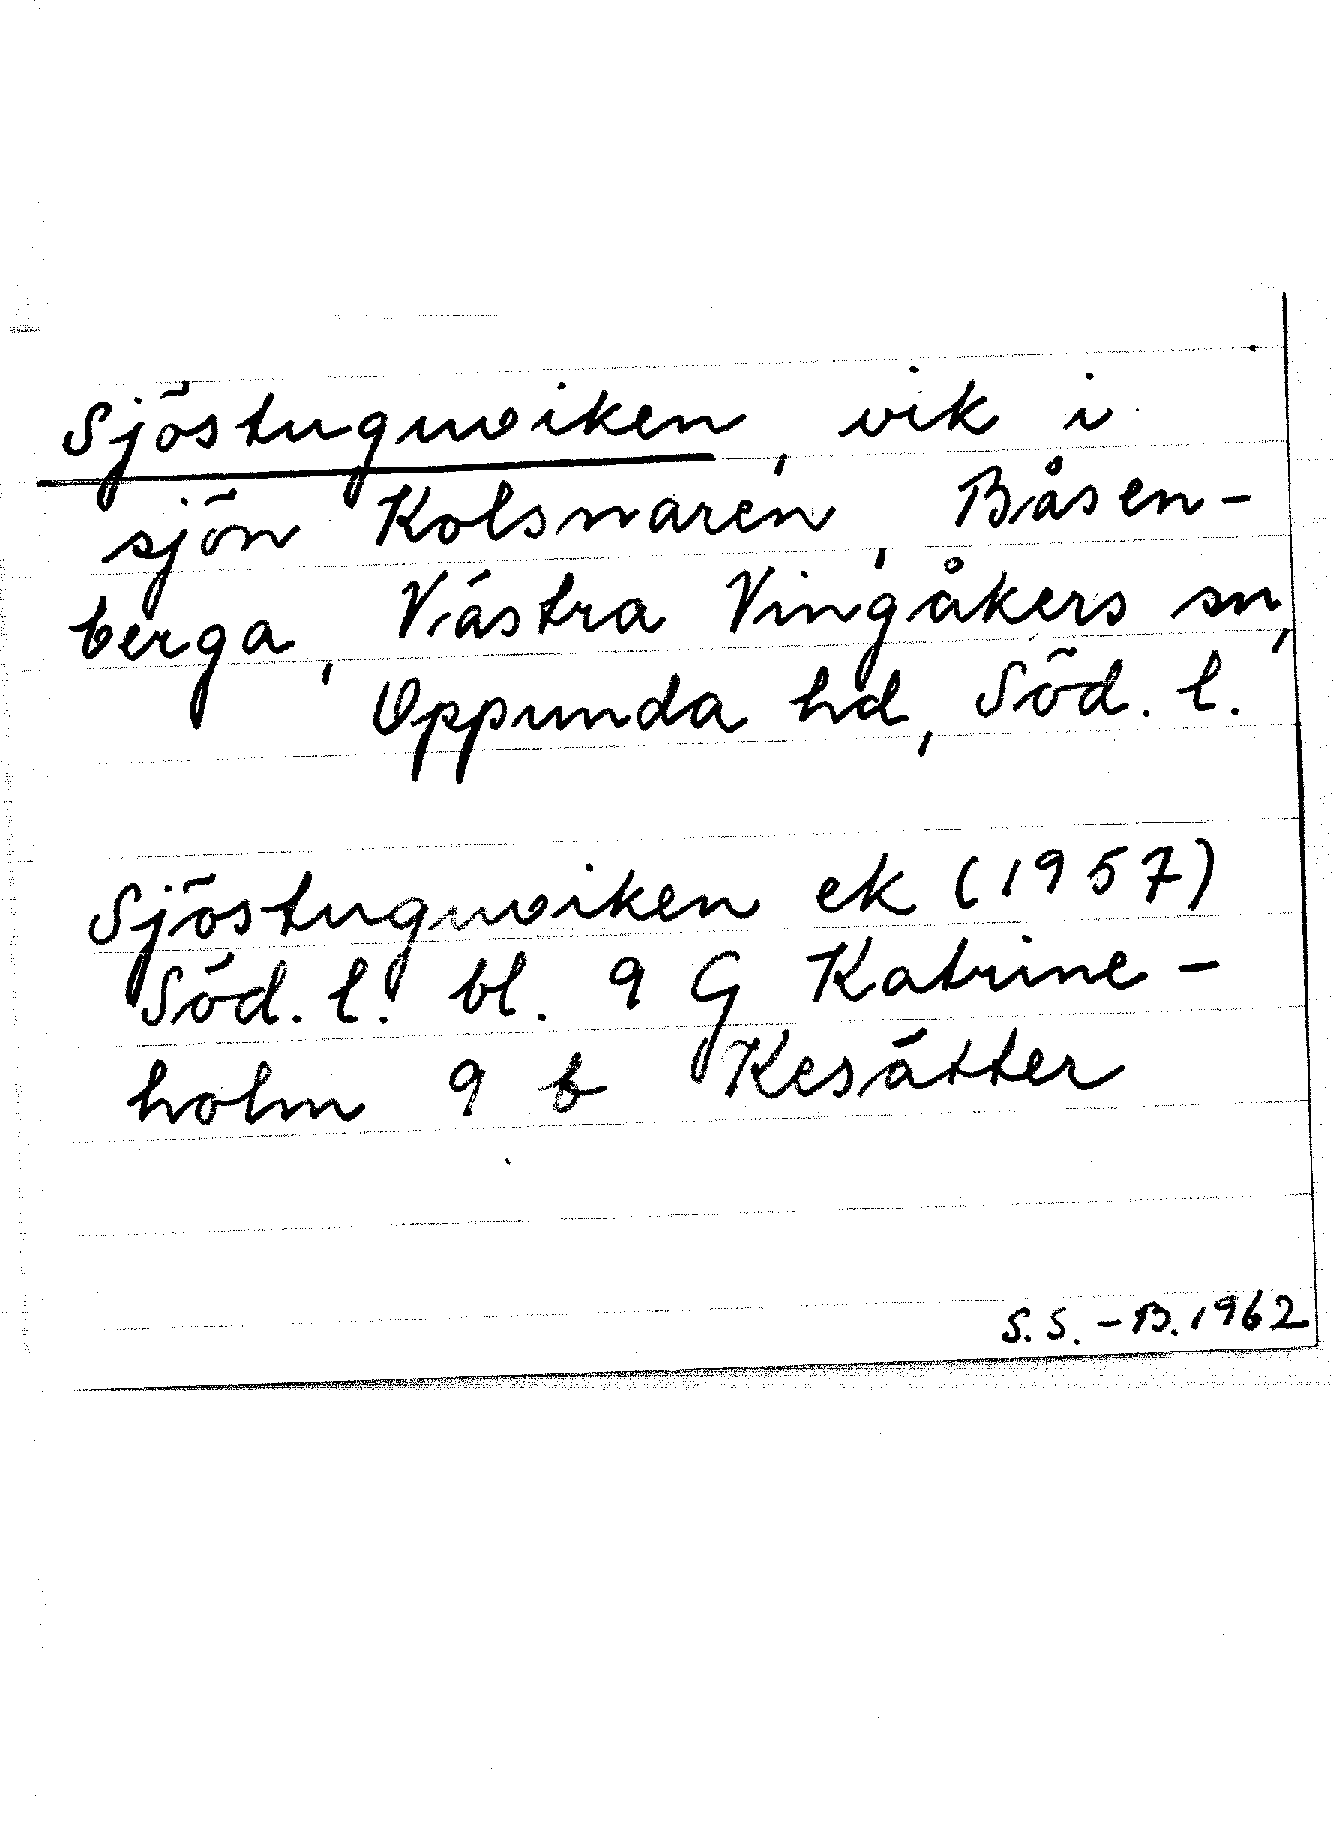 Sjöstuguviken, vik i
sjön Kolsnaren, Båsen-
berga, Västra Vingåkers sn,
Oppunda hd, Söd. l.
Sjöstuguviken ek (1957)
Söd. l. bl. 9 G Katrine-
holm 9 b Kesätter
S. S. - B. 1962